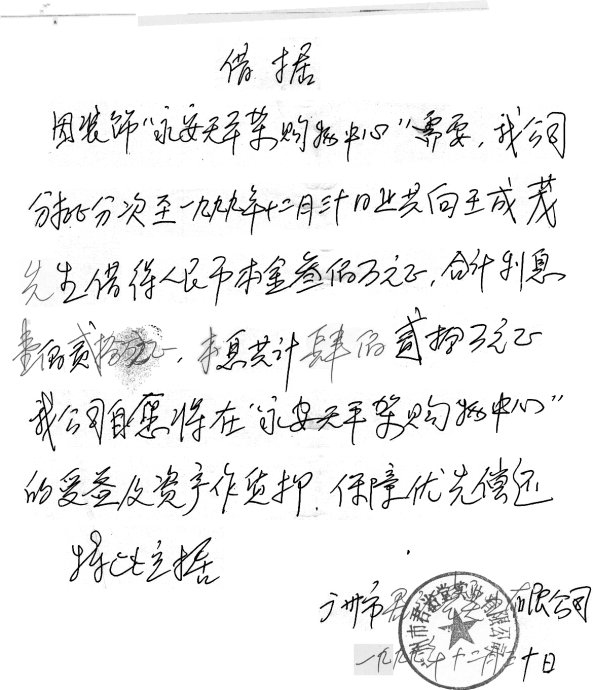 借据
因装饰“永安天平架购物中心”需要，我公司
分批分次至一九九九年十二月三十日止共向王成茂
先生借得人民币本金叁佰万元正，合计利息
壹佰贰拾万元正，本息共计肆佰贰拾万元正
我公司自愿将在“永安天平架购物中心”
的受益及资产作货押．保障优先偿还
据此立据
广州市君 有限公司
一九九九年十二月三十日